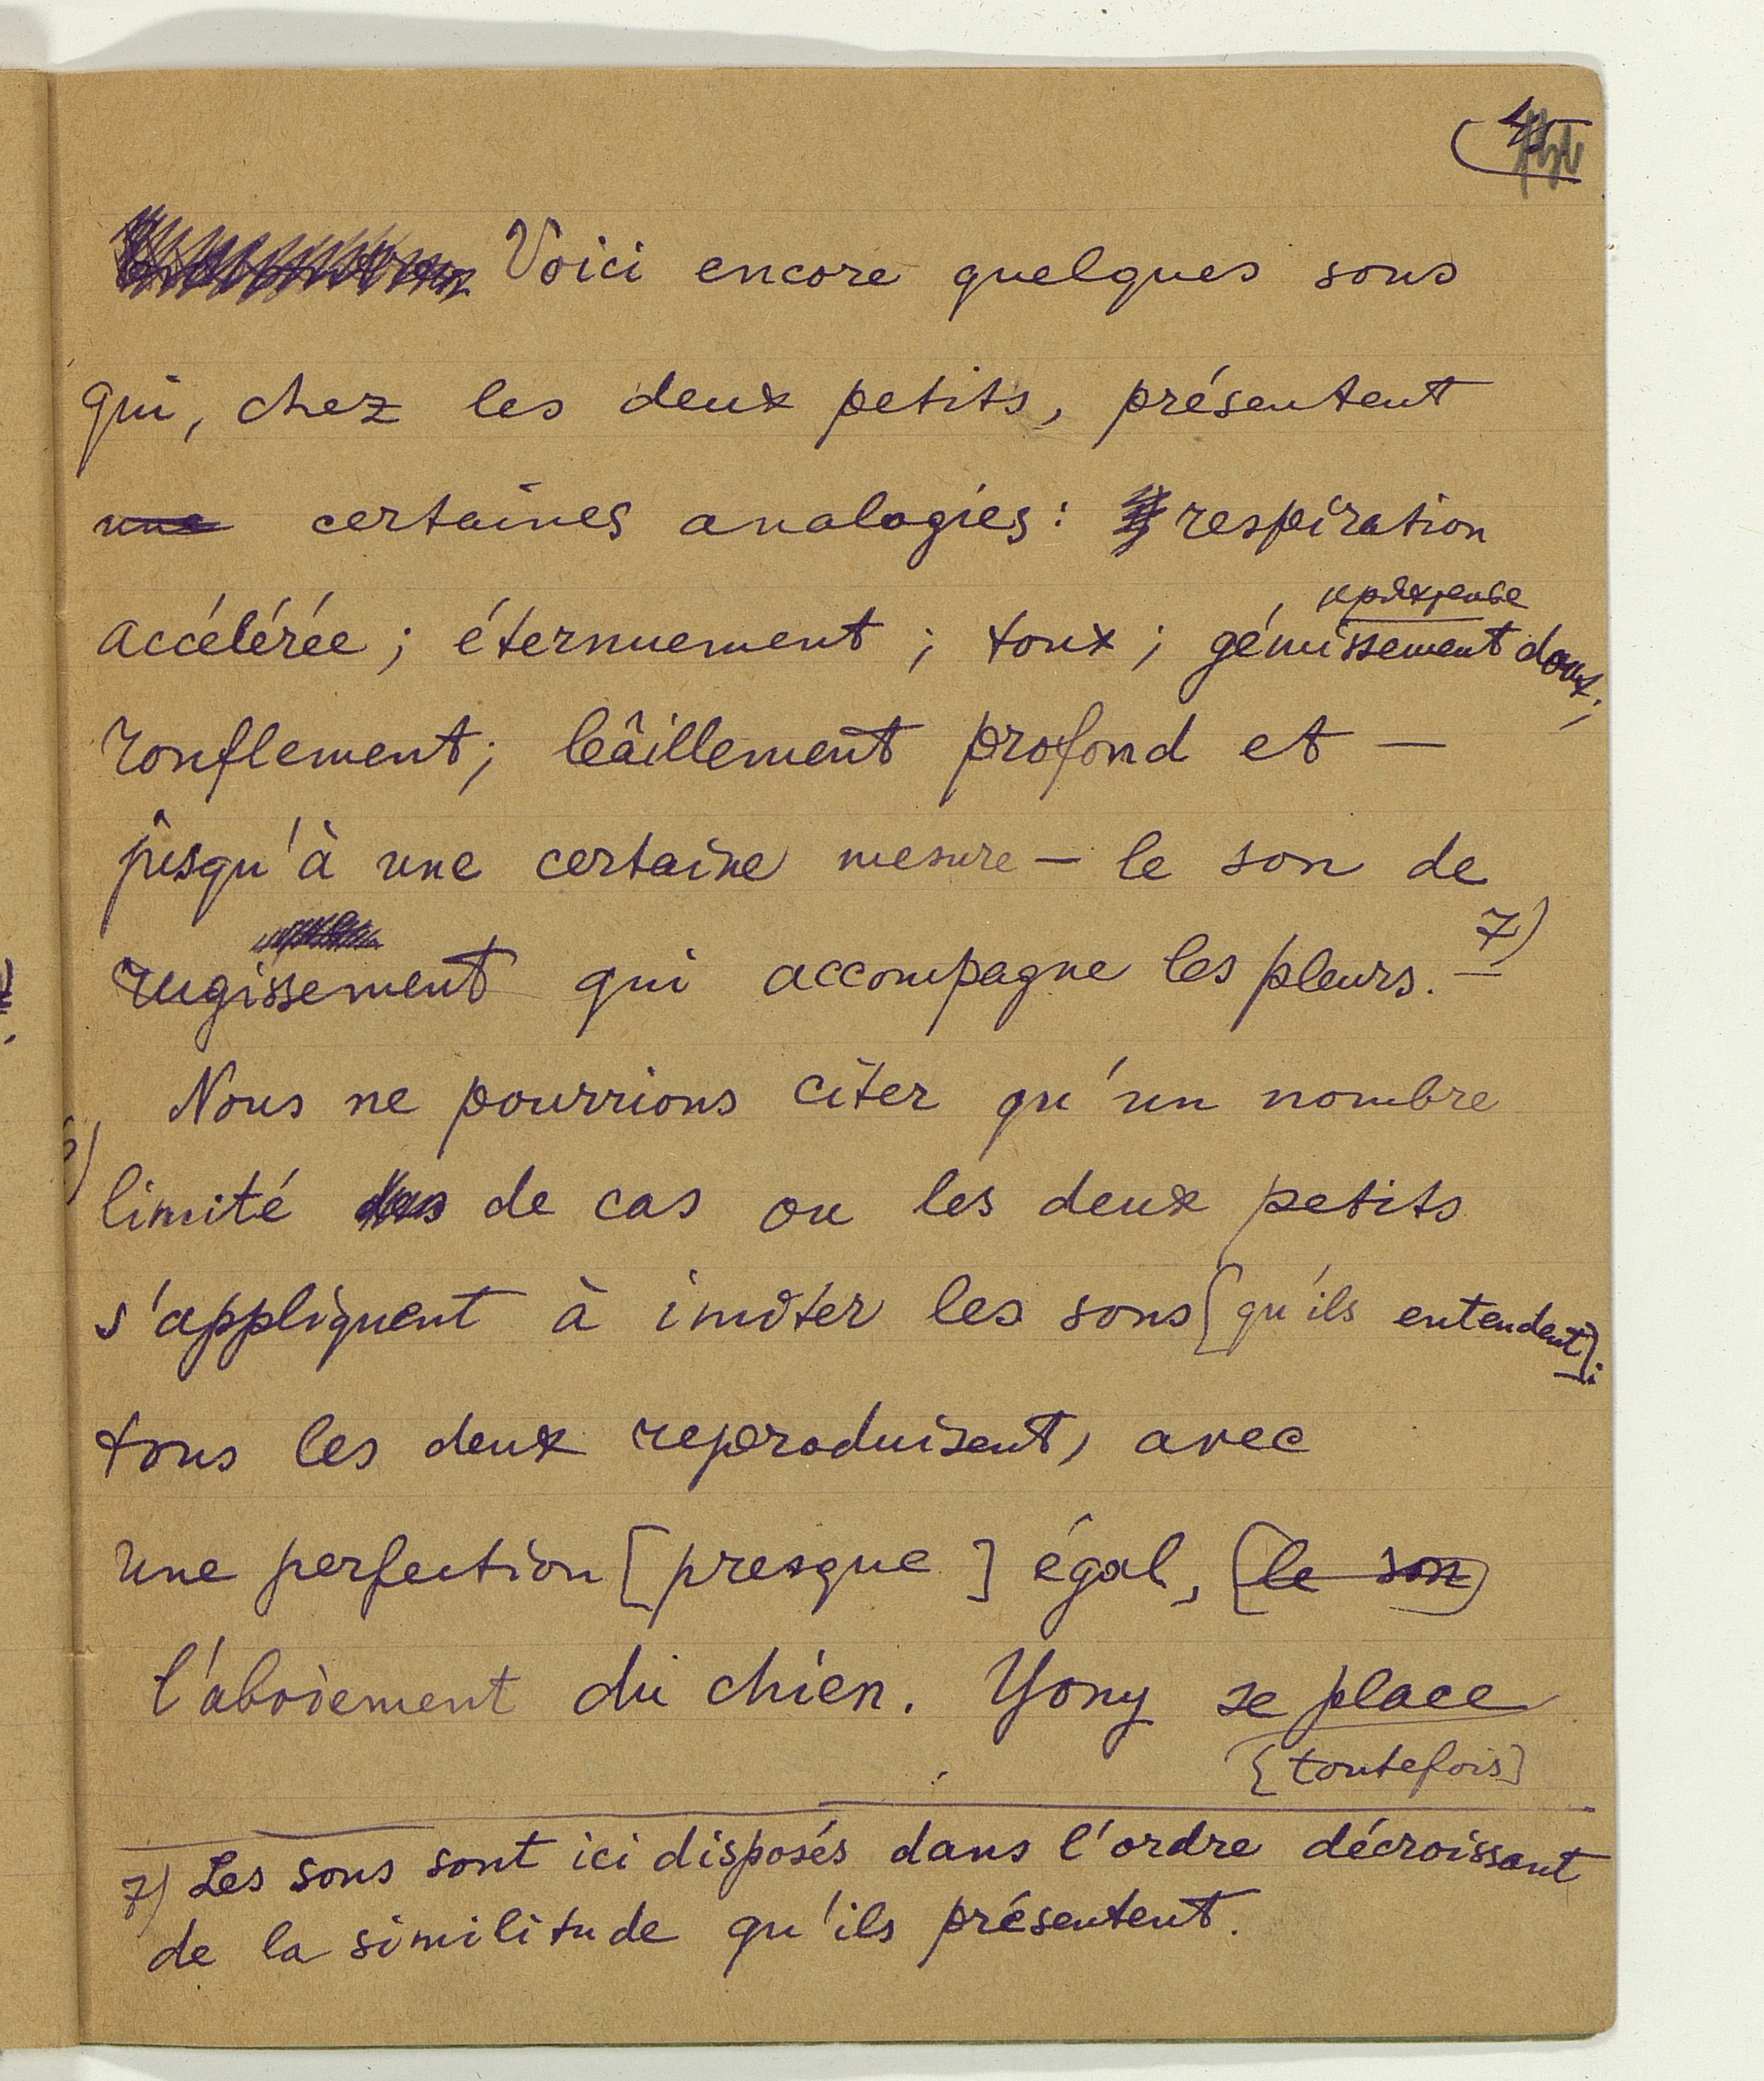 45
Voici encore quelques sons
qui, chez les deux petits, présentent
une certaines analogies: respiration
accélérée; éternuement; toux; gémissement doux;
ronflement; bâillement profond et —
jusqu'à une certaine mesure — le son de
rugissement qui accompagne les pleurs. 7)
Nous ne pourrions citer qu'un nombre
limité de cas ou les deux petits
s'appliquent à imiter les sons [qu'ils entendent]:
tous les deux reproduisent, avec
une perfection [presque] égal, [le son]
l'aboiement du chien. Yony se place
[toutefois]
7) Les sons sont ici disposés dans l'ordre décroissant
de la similitude qu'ils présentent.